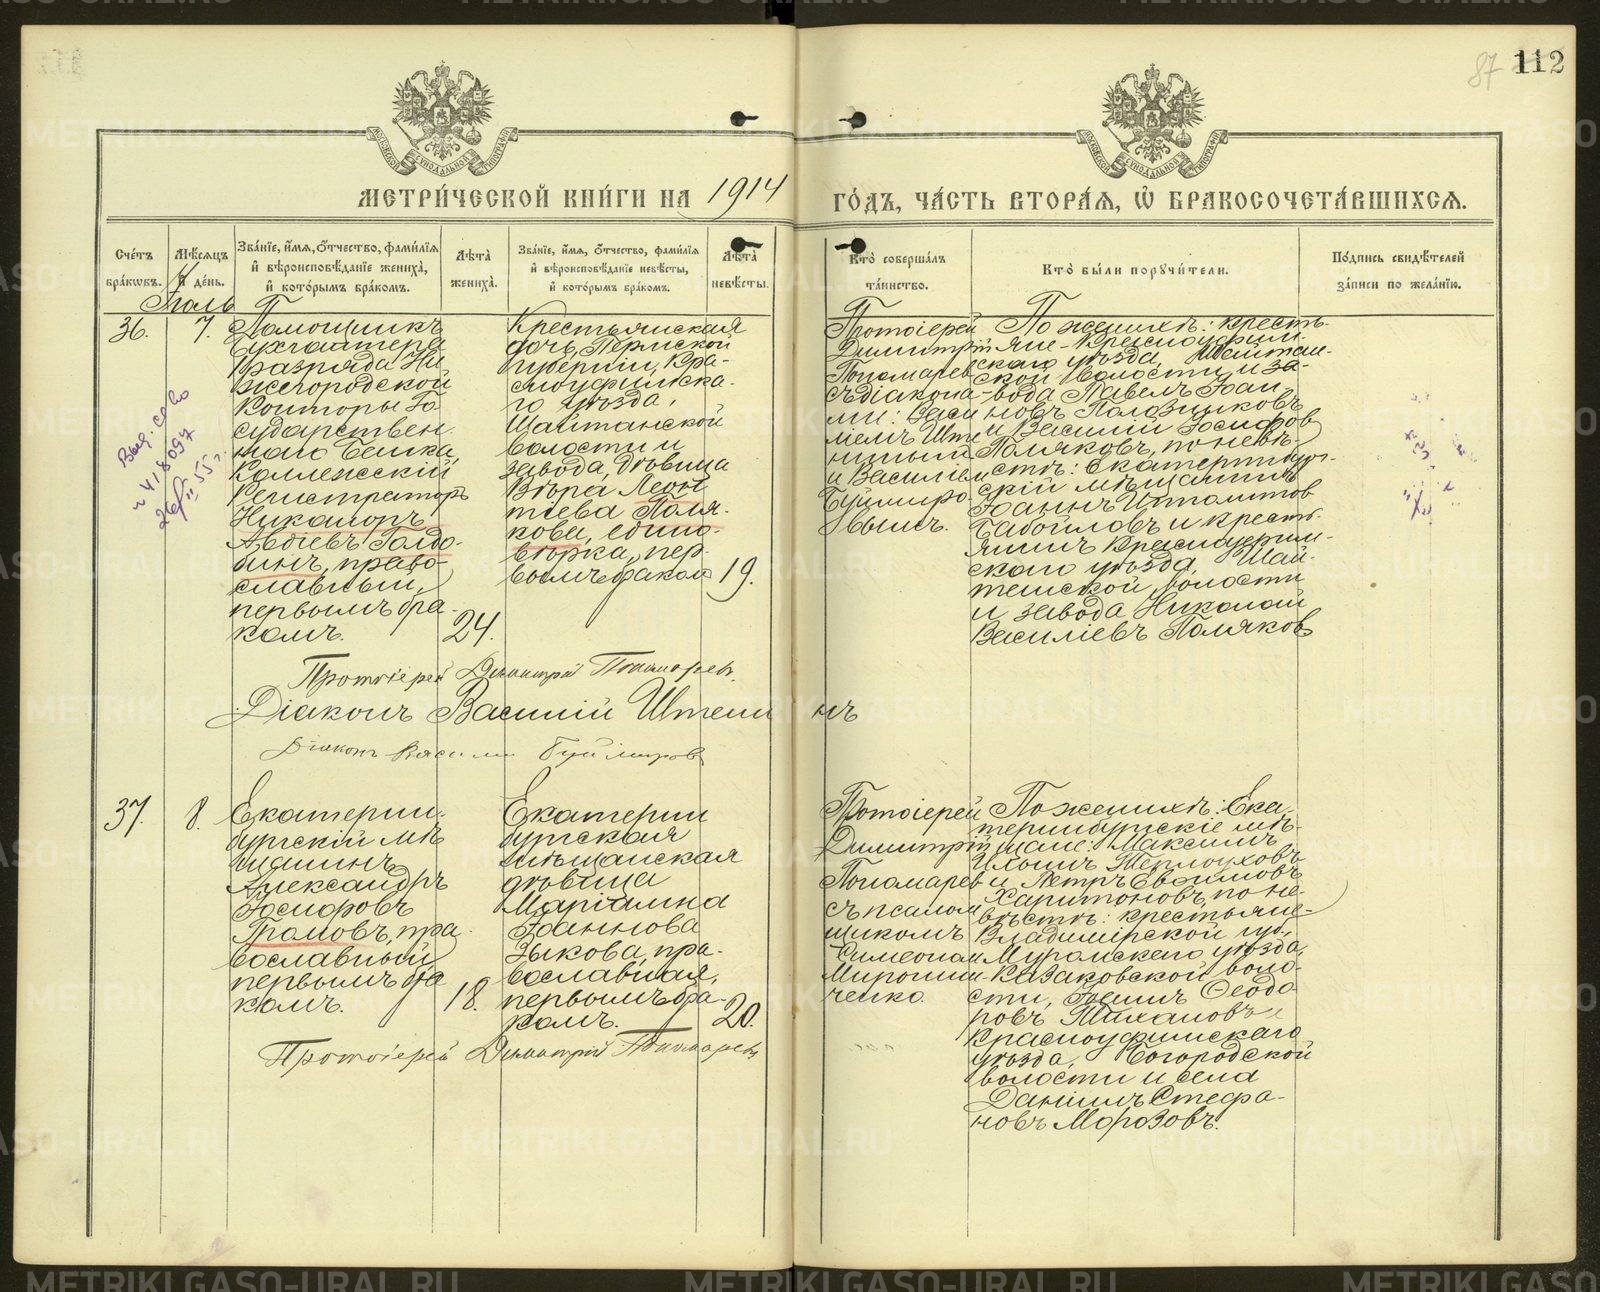 87 112
МОСКОВСКОЙ СѴНОДАЛЬНОЙ ТИПОГРАФІИ
МОСКОВСКОЙ СѴНОДАЛЬНОЙ ТИПОГРАФІИ
МЕТРИ́ЧЕСКОЙ КНИ́ГИ НА 1914
ГО́ДЪ, ЧА́СТЬ ВТОРА́Я, Ѽ БРАКОСОЧЕТА́ВШИХСЯ.
Сче́тъ бра́кѡвъ.
Мѣ́сяцъ и҆ де́нь.
Зва́нїе, и҆́мя, ѻ҆́тчество, фами́лїя и҆ вѣроисповѣ́данїе жениха̀, и҆ кото́рымъ бра́комъ.
Лѣ́та жениха̀.
Зва́нїе, и҆́мя, ѻ҆́тчество, фами́лїя и҆ вѣроисповѣ́данїе невѣ́сты, и҆ кото́рымъ бра́комъ.
Лѣ́та невѣ́сты.
Кто̀ соверша́лъ та́инство.
Кто̀ бы́ли поручи́тели.
По́дпись свидѣ́телей за́писи по жела́нїю.
Іюль
36.
7.
Помощникъ
Бухгалтера
I разряда Ни-
жегородской
Конторы Го
сударствен
наго Банка,
Коллежскій
Регистраторъ
Никаноръ
Авдіевъ Голдо-
бинъ, право-
славный,
первымъ бра-
комъ.
24.
Крестьянская
дочь, Пермской
губерніи, Кра-
сноуфимска-
го уѣзда,
Шайтанской
волости и
завода, дѣвица
Вѣра Леон
тіева Поля-
кова, едино-
вѣрка, пер-
вымъ бракомъ
19.
Протоіерей
Димитрій
Пономарев
съ діакона-
ми: Васи
ліемъ Ште
нинымъ
и Василіем
Буймиро-
вымъ.
По женихѣ: кресть-
яне Красноуфим-
скаго уѣзда, Шайтан-
ской волости и за-
вода Павелъ Іоан
новъ Половниковъ
и Василій Іосифов
Поляковъ, по невѣ-
стѣ: Екатеринбург-
скій мѣщанинъ
Іоаннъ Ипполитов
Бабойловъ и кресть-
янинъ Красноуфим-
скаго уѣзда, Шай-
танской волости
и завода Николай
Василіевъ Поляков
Протоіерей Димитрій Пономаревъ.
Діаконъ Василій Штенинъ
Діаконъ Василій Буймировъ
37.
8.
Екатерин-
бургскій мѣ
щанинъ
Александръ
Іосифовъ
Громовъ, пра-
вославный,
первымъ бра
комъ.
18.
Екатерин
бургская
мѣщанская
дѣвица
Маріамна
Іоаннова
Зыкова, пра-
вославная,
первымъ бра-
комъ.
20.
Протоіерей
Димитрій
Пономарев
съ псалом
щикомъ
Симеоном
Мирошни-
ченко.
По женихѣ: Ека-
теринбургскіе мѣ-
щане: Максимъ
Ильинъ Теплоуховъ
и Петръ Евфимовъ
Харитоновъ, по не-
вѣстѣ: крестьяне-
Владимірской губ.,
Муромскаго уѣзда,
Казаковской воло-
сти, Іоаннъ Ѳеодо-
ровъ Тихановъ и
Красноуфимскаго
уѣзда, Богородской
волости и села
Даніилъ Стефа-
новъ Морозовъ.
Протоіерей Димитрій Пономаревъ